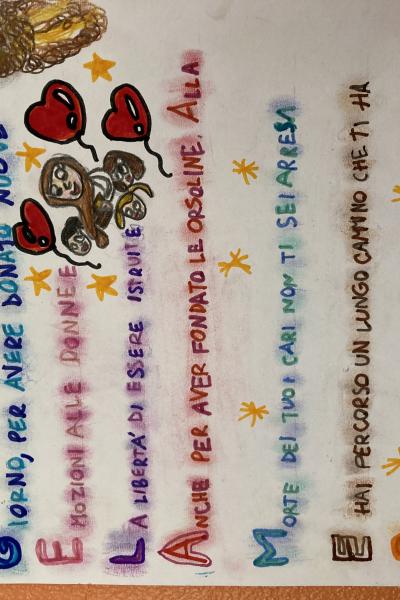 GIORNO, PER AVERE DONATO NUOVE
EMOZIONI ALLE DONNE E
LA LIBERTA' DI ESSERE ISTRUITE
ANCHE PER AVER FONDATO LE ORSOLINE. ALLA
MORTE DEI TUOI CARI NON TI SEI ARRESA
E HAI PERCORSO UN LUNGO CAMMINO CHE TI HA